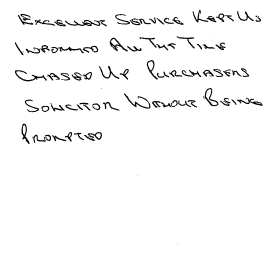 Excellent Service Kept Us
Informed All The Time
Chased Up Purchasers
Solicitor Without Being
Prompted